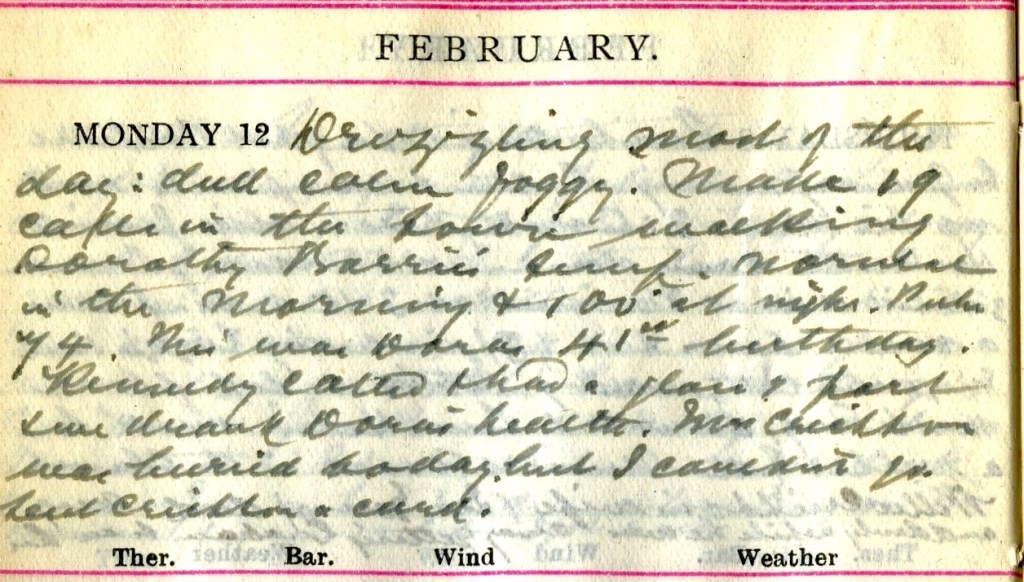 FEBRUARY.
MONDAY 12 Drizzling most of the
day: dull calm foggy. Made 19
calls in the town walking
Dorothy Barrie's temp. normal
in the morning & 100° at night. Pulse
74. This was Doras 41st birthday.
Kennedy called & had a glass of port
& we drank Dora's health. Mrs Crichton
was buried today, but I couldn't go
sent Crichton a card.
Ther. Bar. Wind Weather